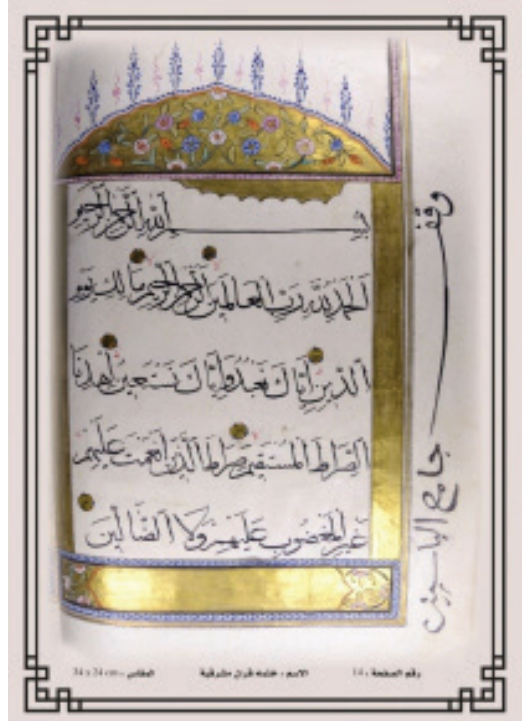 بسم الله الرحمن الرحيم
الحمد لله رب العالمين الرحمن الرحيم مالك يوم
الدين إياك نعبد وإياك نستعين اهدنا
الصراط المستقيم صراط الذين أنعمت عليهم
غير المغضوب عليهم ولا الضالين
وقف جامع الياسين
رقم الصفحة : 14
الاسم : ختمة قرآن مشرقية
المقاس : 34 x 24 cm